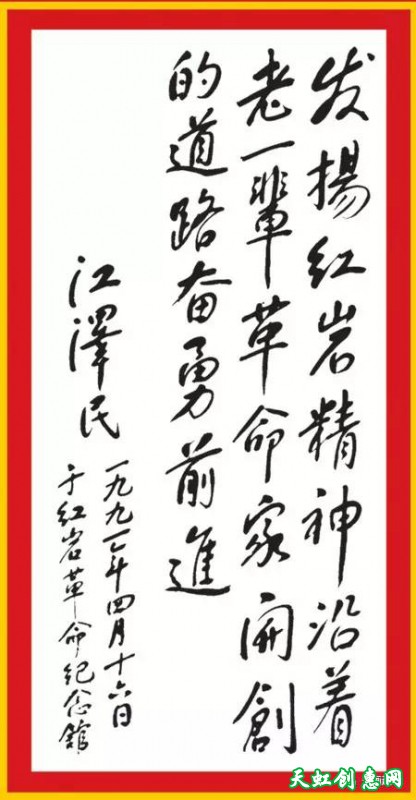 发揚红岩精神沿着
老一輩革命家開創
的道路奋勇前進
江澤民
一九九一年四月十六日
于红岩革命纪念館
天虹创惠网